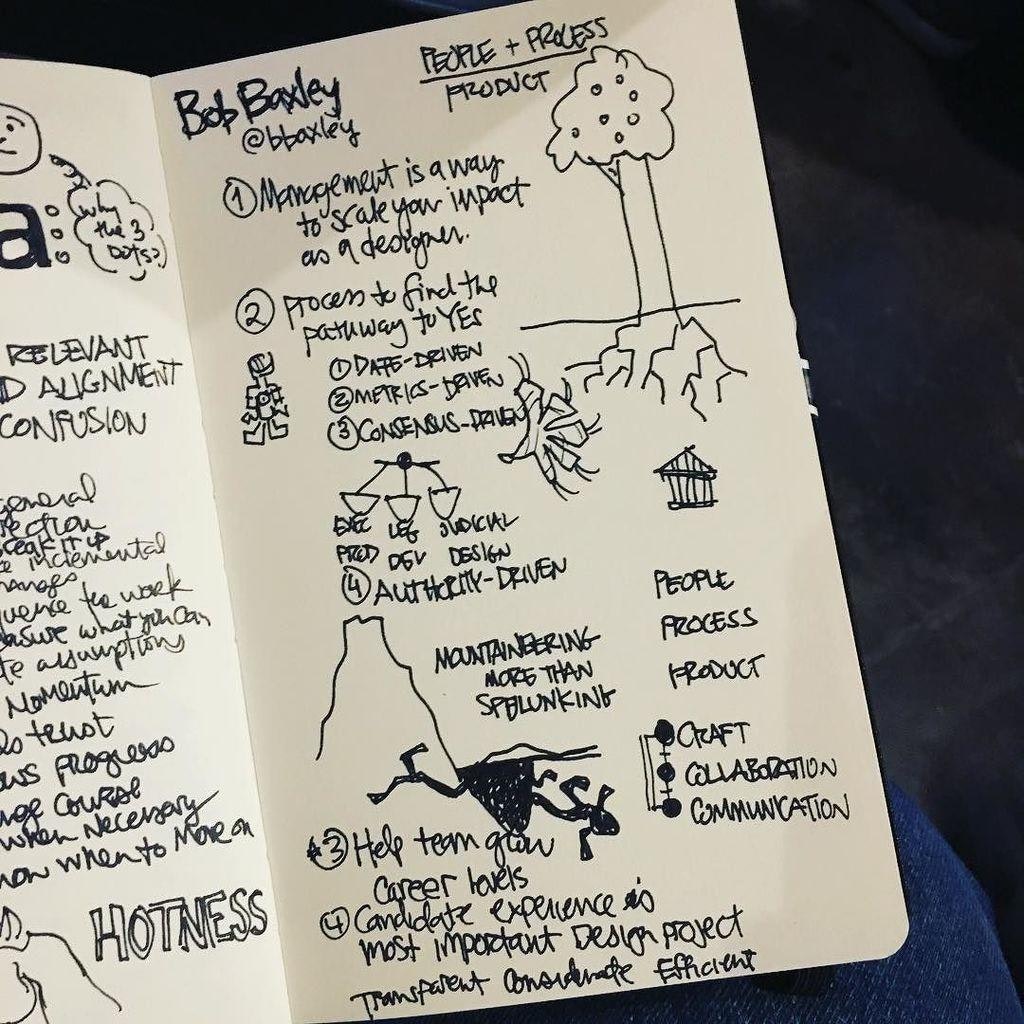 why
the 3
dots?
a:
RELEVANT
D ALIGNMENT
CONFUSION
general
ection
break it up
e incremental
hanges
quence the work
easure what you can
te assumptions
Momentum
ds trust
ows progress
nge course
when necessary
now when to Move on
HOTNESS
PEOPLE + PROCESS
PRODUCT
Bob Baxley
@bbaxley
① Management is a way
to scale your impact
as a designer.
② process to find the
pathway to YES
① DATE-DRIVEN
② METRICS-DRIVEN
③ CONSENSUS-DRIVEN
EXEC LEG JUDICIAL
PROD DEV DESIGN
④ AUTHORITY-DRIVEN
MOUNTAINEERING
MORE THAN
SPELUNKING
PEOPLE
PROCESS
PRODUCT
CRAFT
COLLABORATION
COMMUNICATION
③ Help team grow
Career levels
④ Candidate experience is
most important Design project
Transparent Considerate Efficient